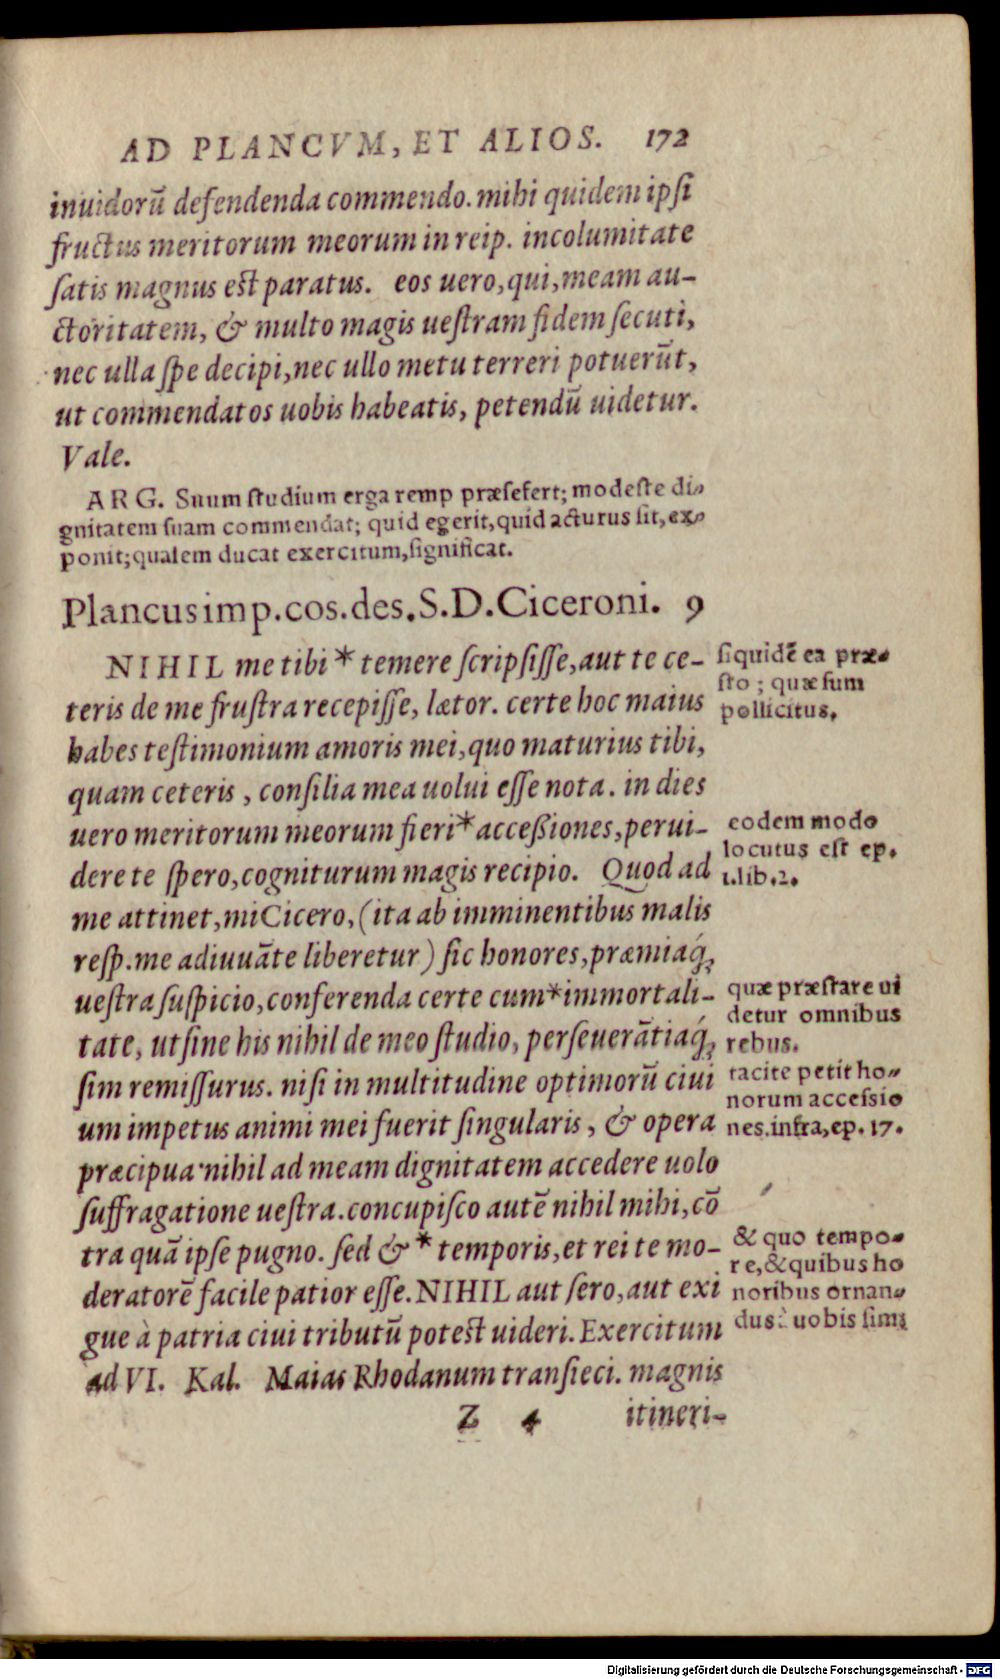 AD PLANCVM, ET ALIOS. 172
inuidorū defendenda commendo. mihi quidem ipſi
fructus meritorum meorum in reip. incolumitate
ſatis magnus est paratus. eos uero, qui, meam au-
ctoritatem, & multo magis ueſtram fidem ſecuti,
nec ulla ſpe decipi, nec ullo metu terreri potuerūt,
ut commendatos uobis habeatis, petendū uidetur.
Vale.
ARG. Suum ſtudium erga remp præſefert; modeſte di-
gnitatem ſuam commendat; quid egerit, quid acturus ſit, ex-
ponit; qualem ducat exercitum, ſignificat.
Plancus imp. cos. des. S. D. Ciceroni. 9
NIHIL me tibi * temere ſcripſiſſe, aut te ce-
teris de me fruſtra recepiſſe, lætor. certe hoc maius
habes teſtimonium amoris mei, quo maturius tibi,
quam ceteris, conſilia mea uolui eſſe nota. in dies
uero meritorum meorum fieri * acceßiones, perui-
dere te ſpero, cogniturum magis recipio. Quod ad
me attinet, mi Cicero, (ita ab imminentibus malis
reſp. me adiuuāte liberetur) ſic honores, præmiaq́;
ueſtra ſuſpicio, conferenda certe cum * immortali-
tate, ut ſine his nihil de meo ſtudio, perſeuerātiaq́;
ſim remiſſurus. niſi in multitudine optimorū ciui
um impetus animi mei fuerit ſingularis, & opera
præcipua· nihil ad meam dignitatem accedere uolo
ſuffragatione ueſtra. concupiſco autē nihil mihi, cō
tra quā ipſe pugno. ſed & * temporis, et rei te mo-
deratorē facile patior eſſe. NIHIL aut ſero, aut exi
gue à patria ciui tributū potest uideri. Exercitum
ad VI. Kal. Maias Rhodanum tranſieci. magnis
Z 4 itineri-
ſiquidē ea præ-
ſto; quæ ſum
pollicitus.
eodem modo
locutus eſt ep.
1. lib. 2.
quæ præſtare ui
detur omnibus
rebus.
tacite petit ho-
norum acceſsio
nes. infra, ep. 17.
& quo tempo-
re, & quibus ho
noribus ornan-
dus à uobis ſim;
Digitalisierung gefördert durch die Deutsche Forschungsgemeinschaft - DFG